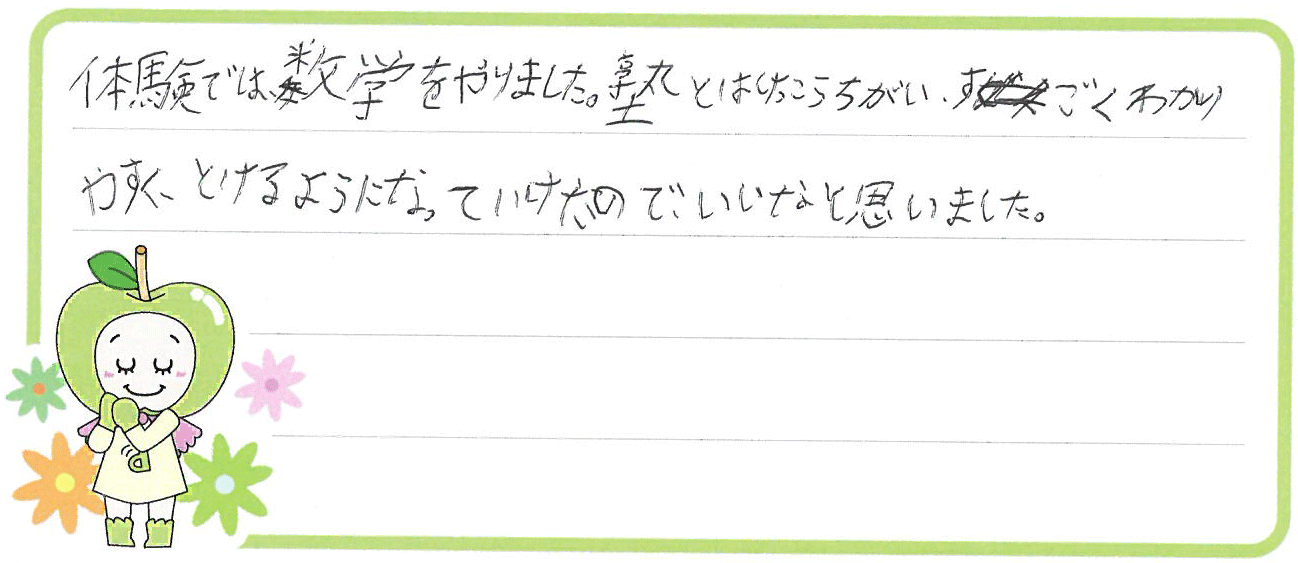 体験では、数学をやりました。塾とはけっこうちがい、すごくわかり
やすく、とけるようになっていけたので、いいなと思いました。